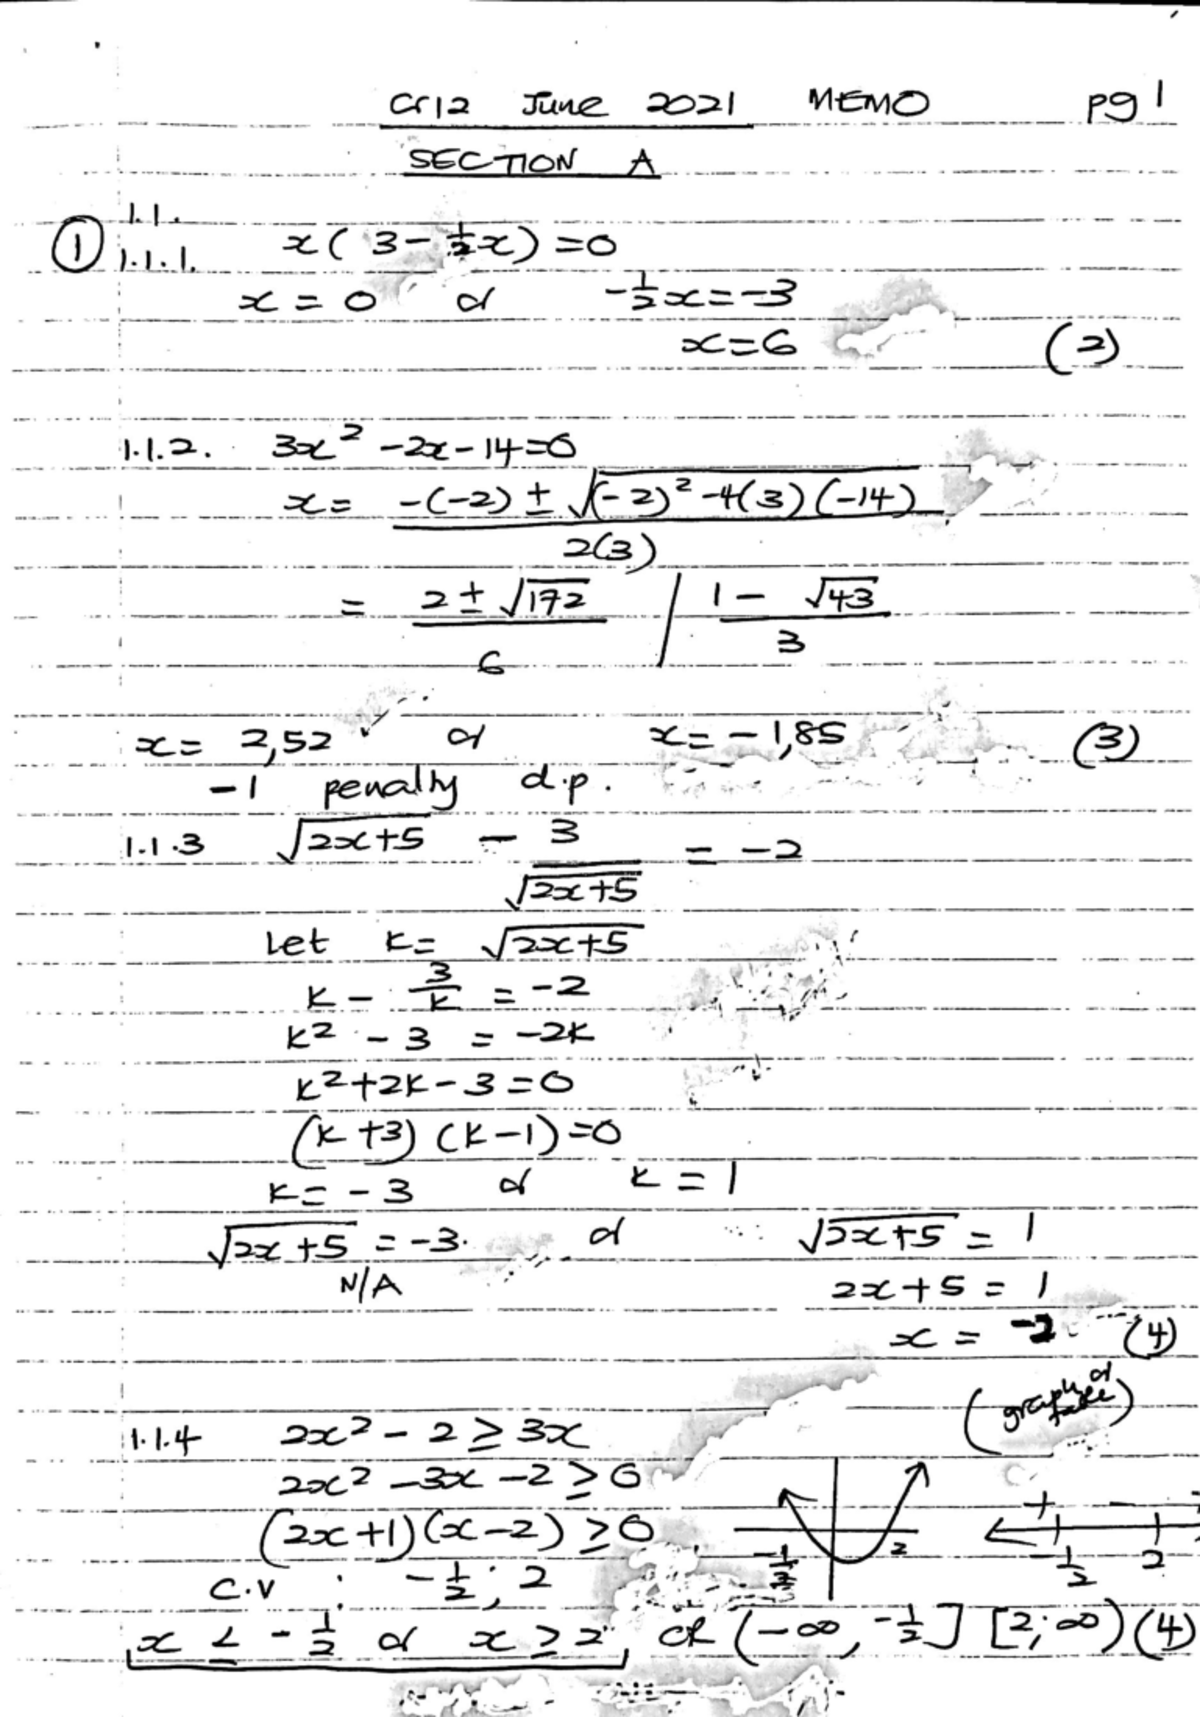 Gr12 June 2021 MEMO pg 1
SECTION A
① 1.1.
1.1.1. x(3-½x)=0
x = 0 or -½x=-3
x=6 (2)
1.1.2. 3x²-2x-14=0
x= -(-2) ± √(-2)²-4(3)(-14)
2(3)
= 2±√172 / 1- √43
6 3
x= 2,52 ✓ or x=-1,85 (3)
-1 penalty d.p.
1.1.3 √2x+5 - 3 = -2
√2x+5
Let k= √2x+5
k - 3/k = -2
k² - 3 = -2k
k²+2k-3=0
(k+3)(k-1)=0
k=-3 or k=1
√2x+5 =-3. or √2x+5 = 1
N/A 2x+5 = 1
x = -2 (4)
(graph or)
1.1.4 2x²-2≥3x
2x²-3x-2≥0
(2x+1)(x-2)≥0 + -
-½ 2 -½ 2
C.V : -½; 2
x ≤ -½ or x≥2 OR (-∞, -½] [2;∞) (4)